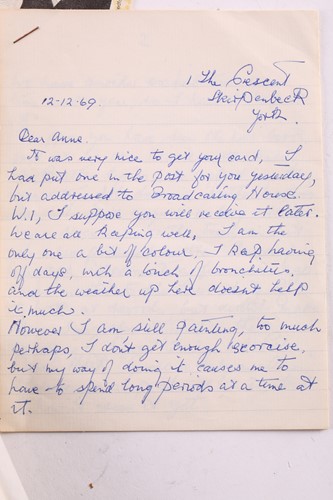 1 The Crescent
Skirpenbeck
York.
12-12-69.
Dear Anne.
It was very nice to get your card, I
had put one in the post for you yesterday,
but addressed to Broadcasing House.
W.1, I suppose you will receive it later.
We are all keeping well, I am the
only one a bit of colour, I kep having
of days, with a touch of bronchitis,
and the weather up here doesn't help
it much.
However I am still painting, too much
perhaps, I don't get enough exercise,
but my way of doing it causes me to
have to spend long periods at a time at
it.